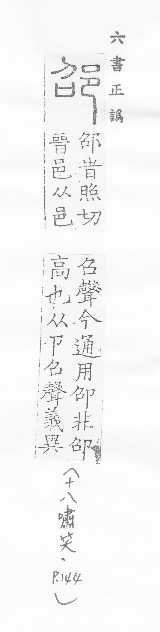 六書正譌
邵
邵旹照切
晉邑从邑
召聲今通用卲非卲
高也从卪召聲義異
(十八嘯笑、P.144)